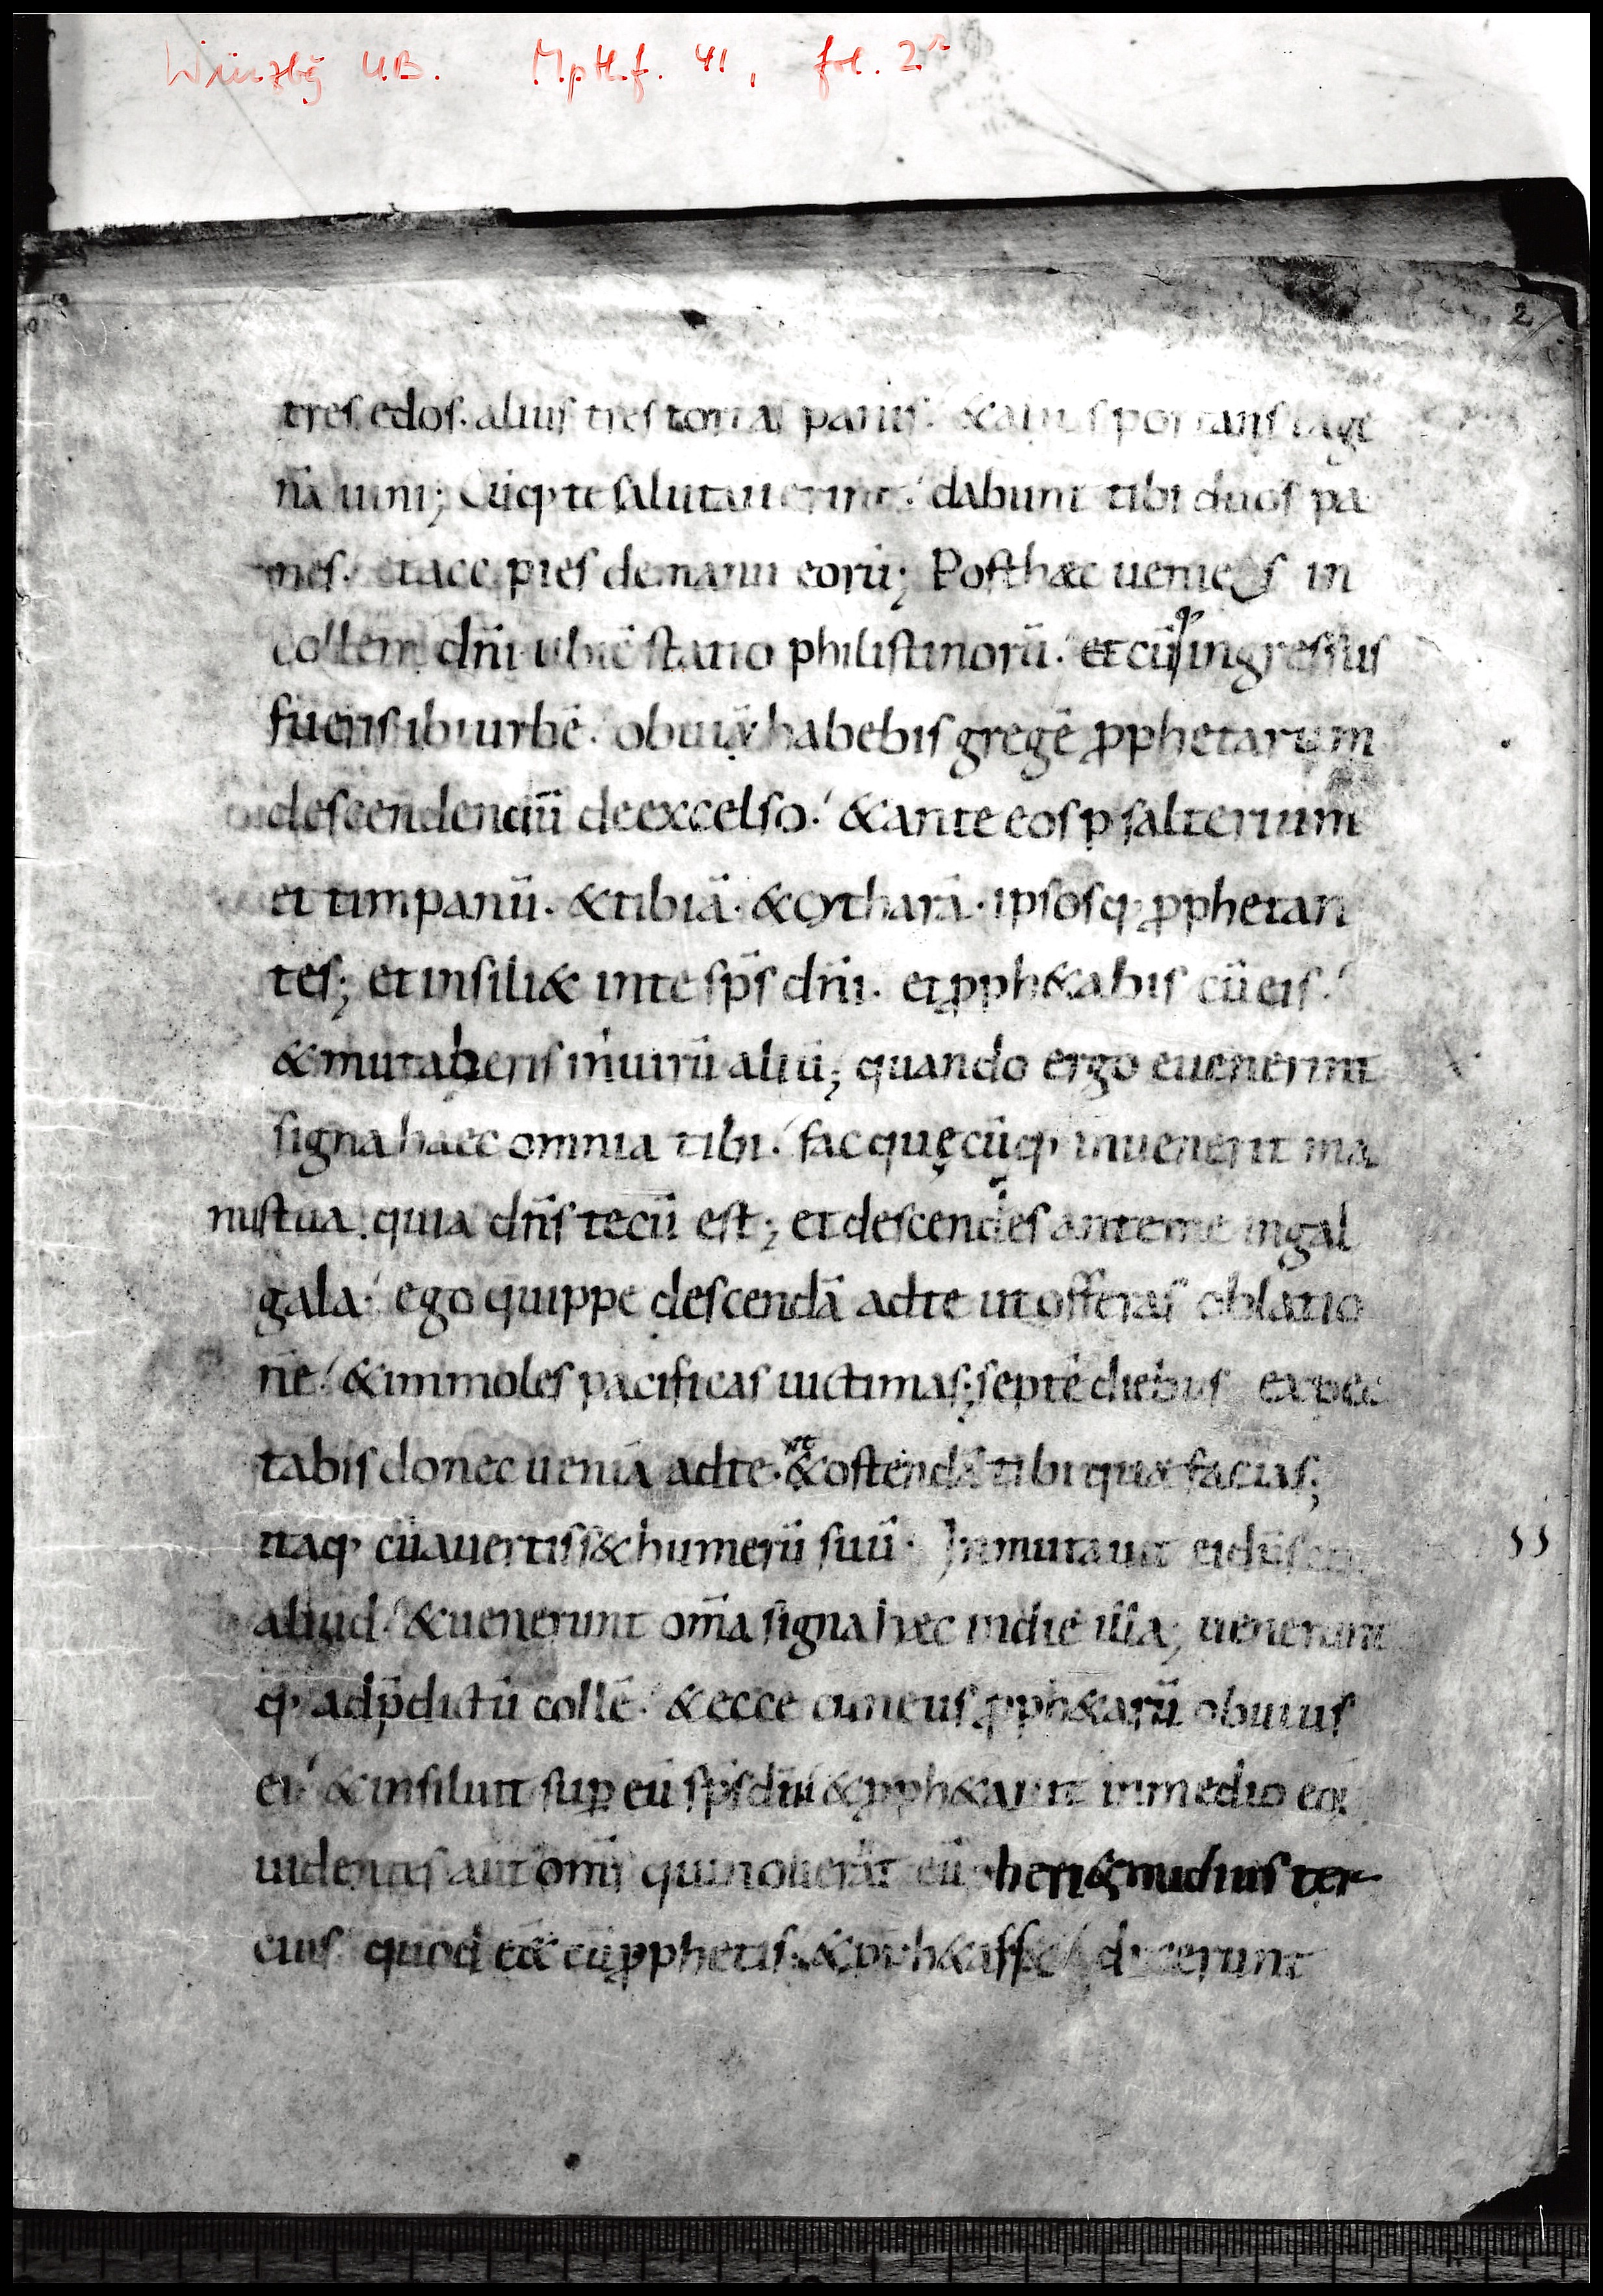 Würzbg UB. Mpthf. 41, fol. 2r
2
tres edos. alius tres tortas panis. & alius portans lage
nā uini; Cūq; te salutauerint. dabunt tibi duos pa
nes. et accipies de manu eorū; Post hæc uenies in
collem dn̄i ubi ē statio philistinorū. et cūq; ingressus
fueris ibi urbē. obuiā habebis gregē ꝓphetarum
descendenciū de excelso. & ante eos psalterium
et timpanū. & tibiā. & cytharā. ipsosq; ꝓphetan
tes; et insili& in te sp̄s dn̄i. et ꝓph&abis cū eis.
& mutaberis in uirū aliū; quando ergo euenerint
signa haec omnia tibi. fac quęcūq; inuenerit ma
nus tua. quia dn̄s tecū est; et descendes ante me in gal
gala. ego quippe descendā ad te ut offeras oblatio
nē. & immoles pacificas uictimas; septē diebus expec
tabis donec ueniā ad te. & ut ostendā tibi quæ facias;
itaq; cū auertiss& humerū suū. Inmutauit ei
aliud. & uenerunt om̄a signa hæc in die illa; uenerunt
q; ad p̄dictū collē. & ecce cuneus ꝓph&arū obuius
ei. & insiluit sup̱ eū sp̄s dn̄i & ꝓph&auit in medio eoꝝ
uidentes aut̄ om̄s qui nouerāt eū heri & nudius ter
cius. quod ēē& cū ꝓphetis. & ꝓph&ass& dixerunt